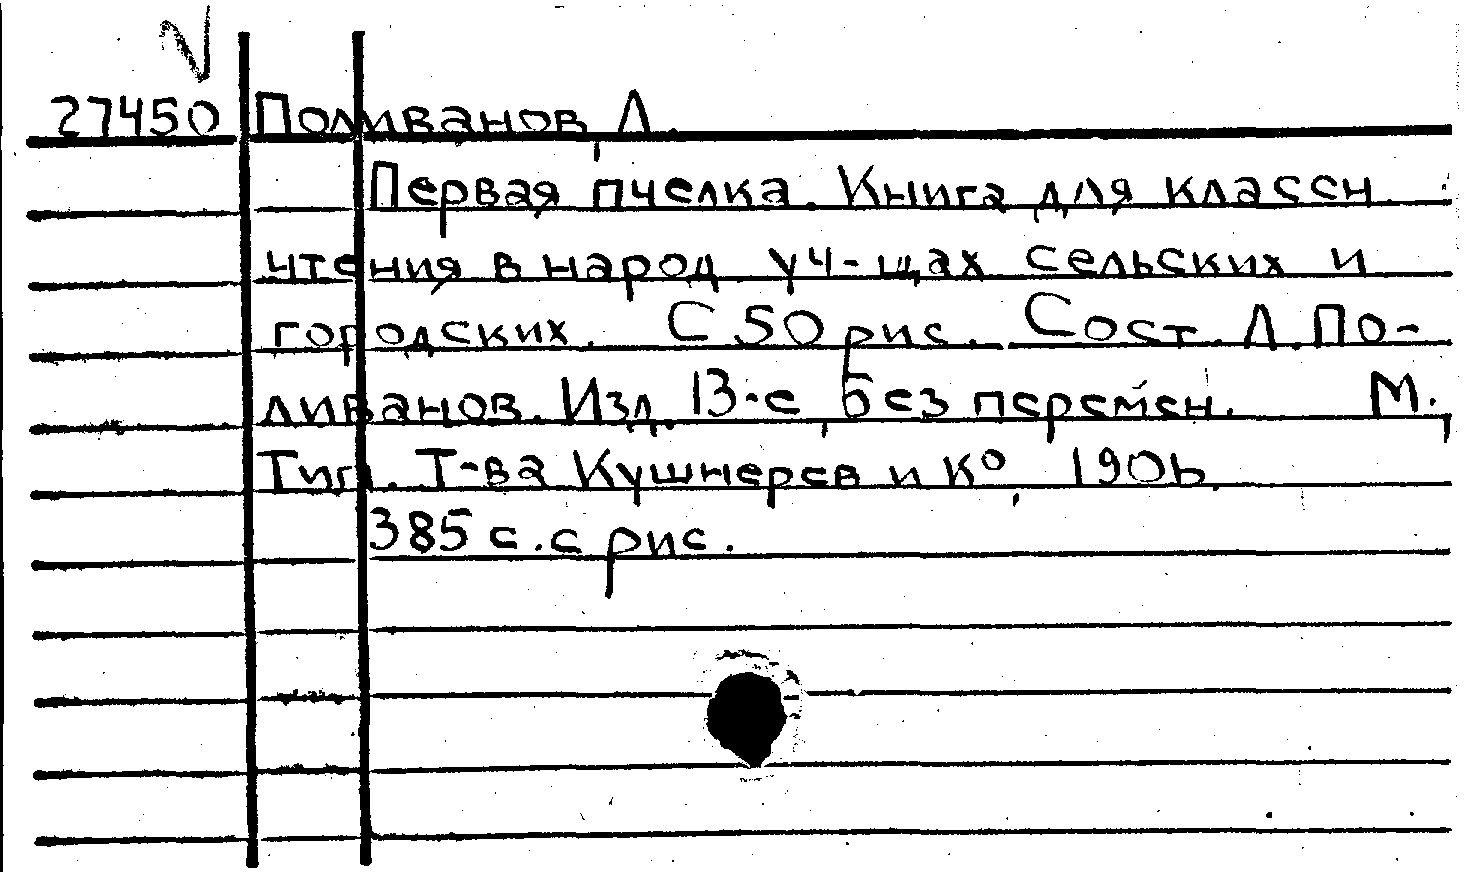 27450 Поливанов, Л.
Первая пчелка. Книга для классн.
чтения в народ уч-щах сельских и
городских. С 50 рис. Сост. Л. По-
ливанов. Изд. 13-е, без перемен. М.,
Тип. Т-ва Кушнерев и К°, 1906.
385 с. с рис.